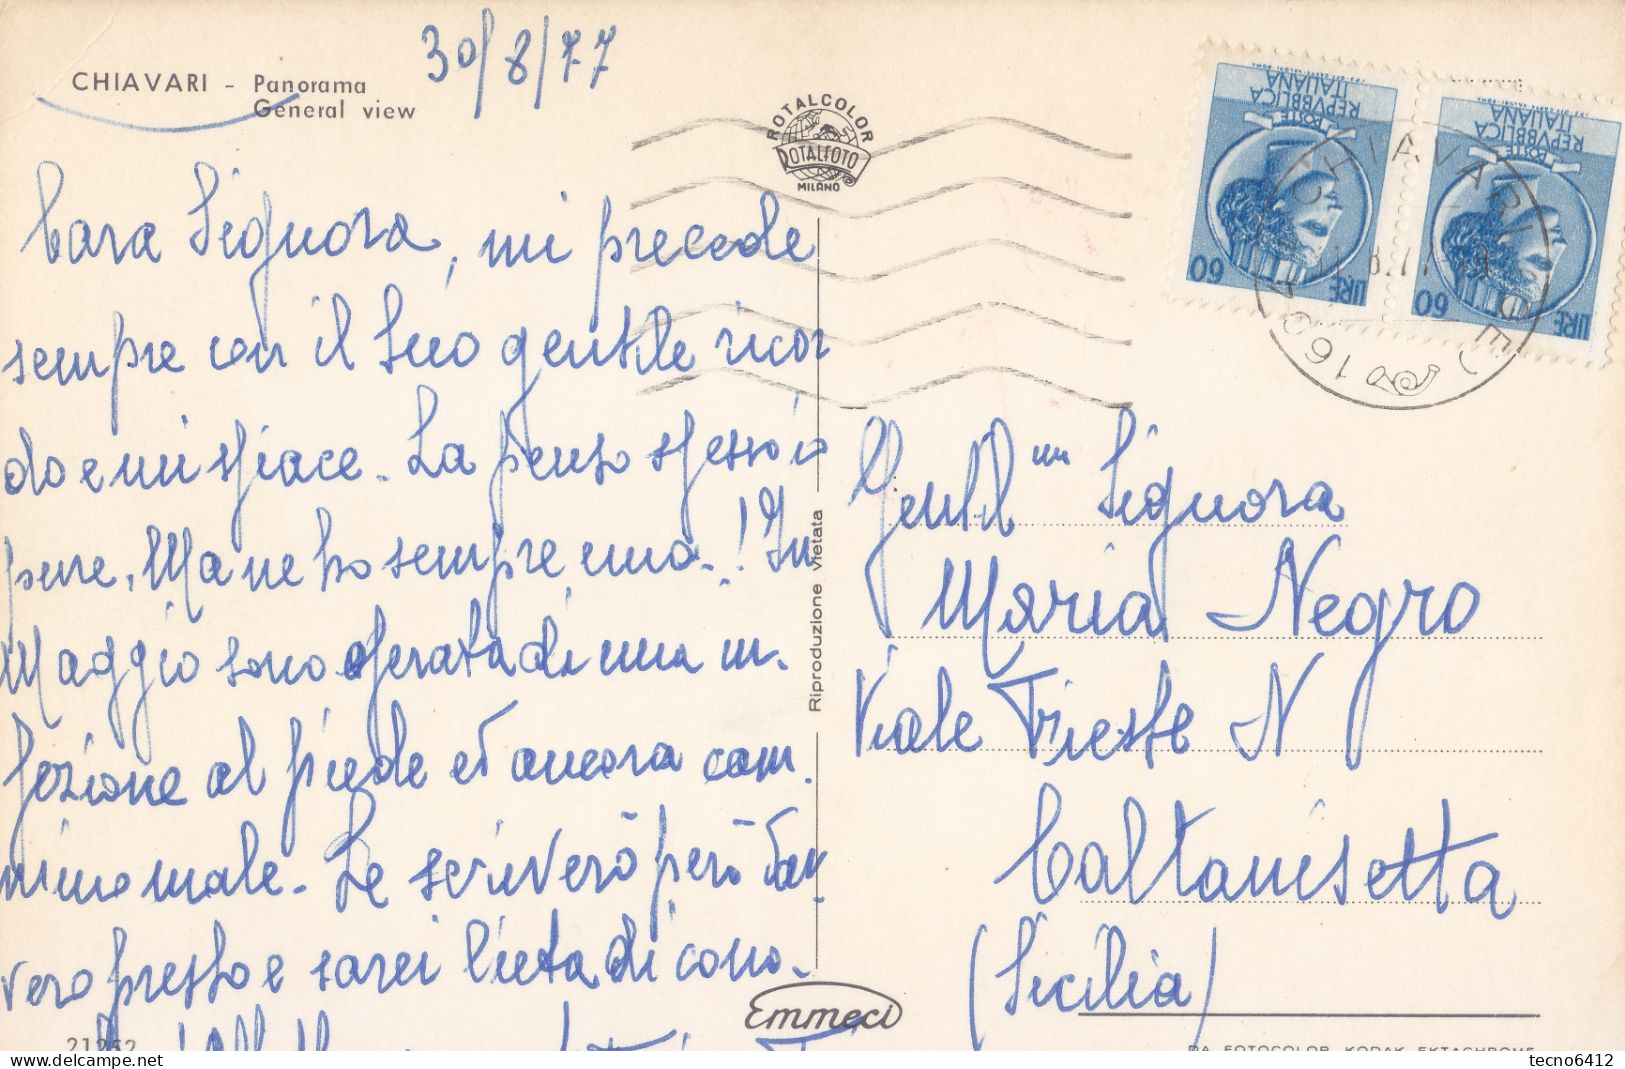 CHIAVARI - Panorama
General view
30/8/77
ROTALCOLOR
ROTALFOTO
MILANO
REPVBBLICA
ITALIANA
POSTE
LIRE 60
REPVBBLICA
ITALIANA
POSTE
LIRE 60
CHIAVARI
Cara Signora, mi precede
sempre con il Suo gentile ricor
do e mi spiace. La penso spesso io
pure. Ma ne ho sempre una.! In
Maggio sono operata di una in.
fezione al piede ed ancora cam.
mino male. Le scriverò però dav
vero presto e sarei lieta di cono.
21252
Riproduzione vietata
Emmeci
Gentil.ma Signora
Maria Negro
Viale Trieste N
Caltanisetta
(Sicilia)
DA FOTOCOLOR KODAK EKTACHROME
tecno6412